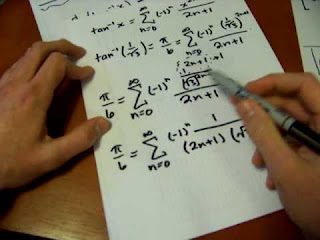 tan⁻¹x = Σ_{n=0}^{∞} (-1)ⁿ x / 2n+1
tan⁻¹(1/√3) = π/6 = Σ_{n=0}^{∞} (-1)ⁿ (1/√3)^{2n+1} / 2n+1
π/6 = Σ_{n=0}^{∞} (-1)ⁿ / 2n+1
π/6 = Σ_{n=0}^{∞} (-1)ⁿ 1 / (2n+1)(√